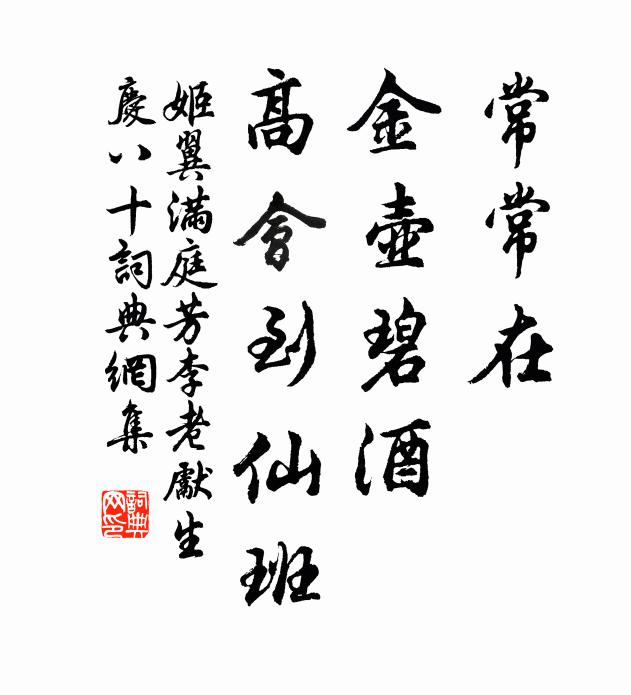 常常在
金壺碧酒
高會到仙班
姬翼滿庭芳李老獻生
慶八十詞典網集
詞典网印